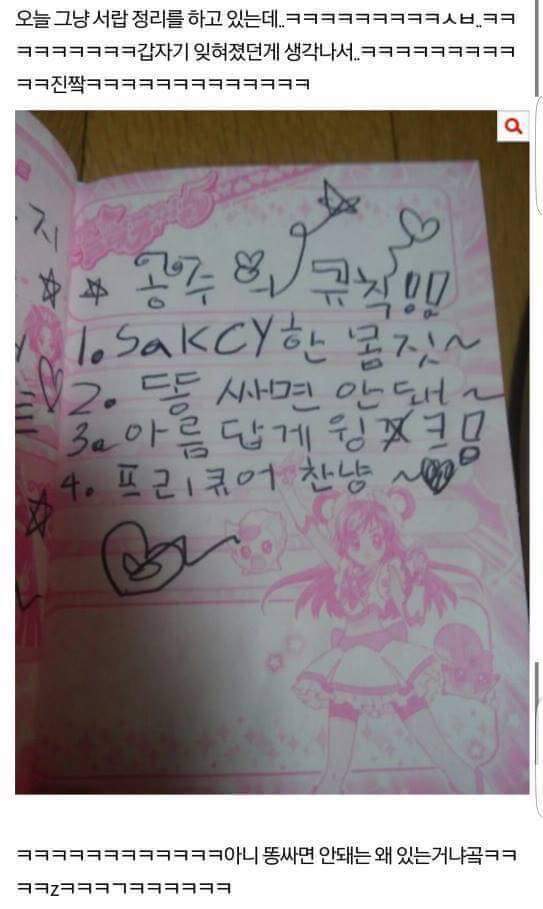 오늘 그냥 서랍 정리를 하고 있는데..ㅋㅋㅋㅋㅋㅋㅋㅋㅋㅅㅂ..ㅋㅋ
ㅋㅋㅋㅋㅋㅋㅋ갑자기 잊혀졌던게 생각나서..ㅋㅋㅋㅋㅋㅋㅋㅋㅋ
ㅋㅋ진짴ㅋㅋㅋㅋㅋㅋㅋㅋㅋㅋㅋㅋㅋ
지
공주의 규칙!!
1. SaKCY한 몸짓~
2. 똥 싸면 안돼~
3. 아름답게 윙크!
4. 프리큐어 찬냥~
ㅋㅋㅋㅋㅋㅋㅋㅋㅋㅋㅋㅋ아니 똥싸면 안돼는 왜 있는거냐곸ㅋㅋ
ㅋㅋzㅋㅋㅋㄱㅋㅋㅋㅋㅋㅋ